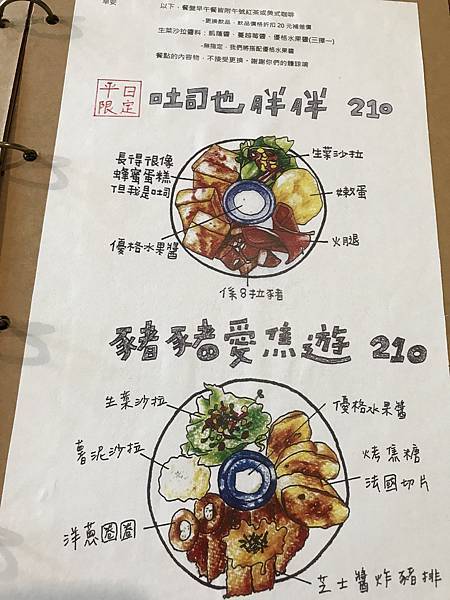 早安
以下、餐盤早午餐皆附午號紅茶或美式咖啡
-更換飲品，飲品價格折扣20元補差價
生菜沙拉醬料：凱薩醬、蔓越莓醬、優格水果醬(三擇一)
-無指定，我們將搭配優格水果醬
餐點的內容物，不接受更換，謝謝你們的鍾誒唷
平日限定
吐司也胖胖 210
長得很像
蜂蜜蛋糕
但我是吐司
生菜沙拉
嫩蛋
優格水果醬
火腿
係8拉豬
豬豬愛焦遊 210
生菜沙拉
優格水果醬
薯泥沙拉
烤焦糖
法國切片
洋蔥圈圈
芝士醬炸豬排